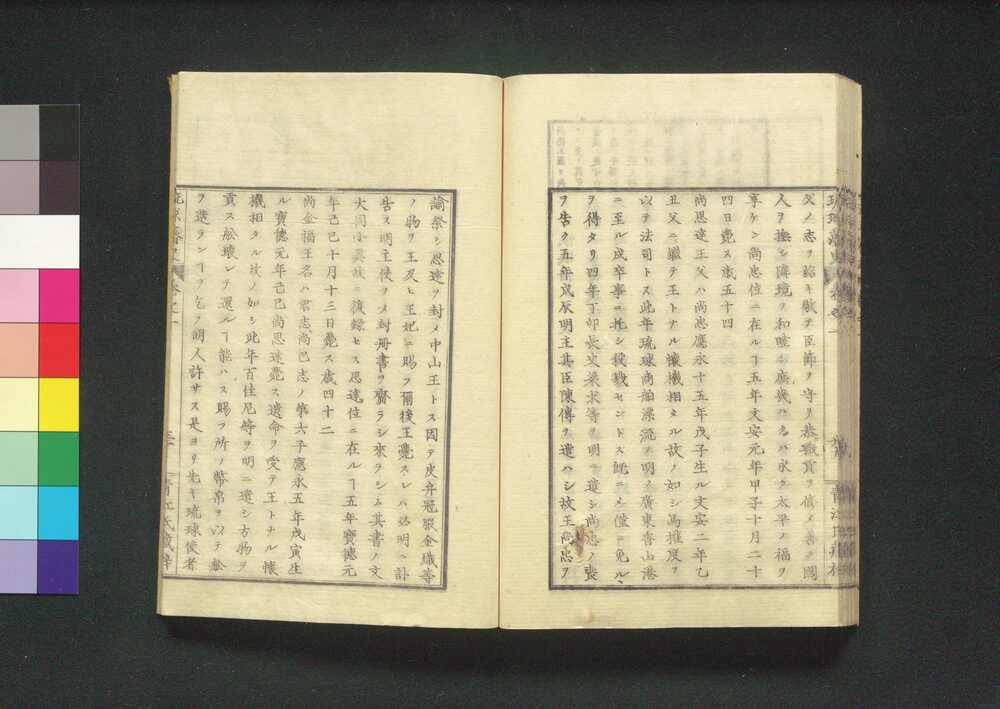 父ノ志ヲ紹キ敬テ臣節ヲ守リ恭職貢ヲ修メ善ク國
人ヲ撫シ隣境ヲ和睦セハ庶幾ハクハ永ク太平ノ福ヲ
享ケン尚忠位ニ在ルヿ五年文安元年甲子十月二十
四日薨ス歳五十四
尚思達王父ハ尚忠應永十五年戊子生ル文安二年乙
丑父ニ繼テ王トナル懷機相タル故ノ如シ馬權度ヲ
以テ法司トス此年琉球商舶漂流シ明ノ廣東香山港
ニ至ル戍卒寧ニ托シ殺戮セントス既ニメ僅ニ免ル
ヲ得タリ四年丁卯長史梁求等ヲ明ニ遣シ尚忠ノ喪
ヲ告ク五年戊辰明主其臣陳傳ヲ遣ハシ故王尚忠ヲ
諭祭シ思達ヲ封メ中山王トス因テ皮弁冠服金織等
ノ物ヲ王及ヒ王妃ニ賜フ爾後王薨スレハ必明ニ訃
告ス明主使ヲメ封册書ヲ齎ラシ來ラシム其書ノ文
大同小異故ニ復録セス思達位ニ在ルヿ五年寶德元
年己巳十月十三日薨ス歳四十二
尚金福王名ハ君志尚巴志ノ第六子應永五年戊寅生
ル寶德元年己巳尚思達薨ス遺命ヲ受テ王トナル懷
機相タル故ノ如シ此年百佳尼等ヲ明ニ遣シ方物ヲ
貢ス舩壞レテ還ルヿ能ハス賜フ所ノ幣帛ヲ以テ舩
ヲ造ランヿヲ乞フ明人許サス是ヨリ先キ琉球使者